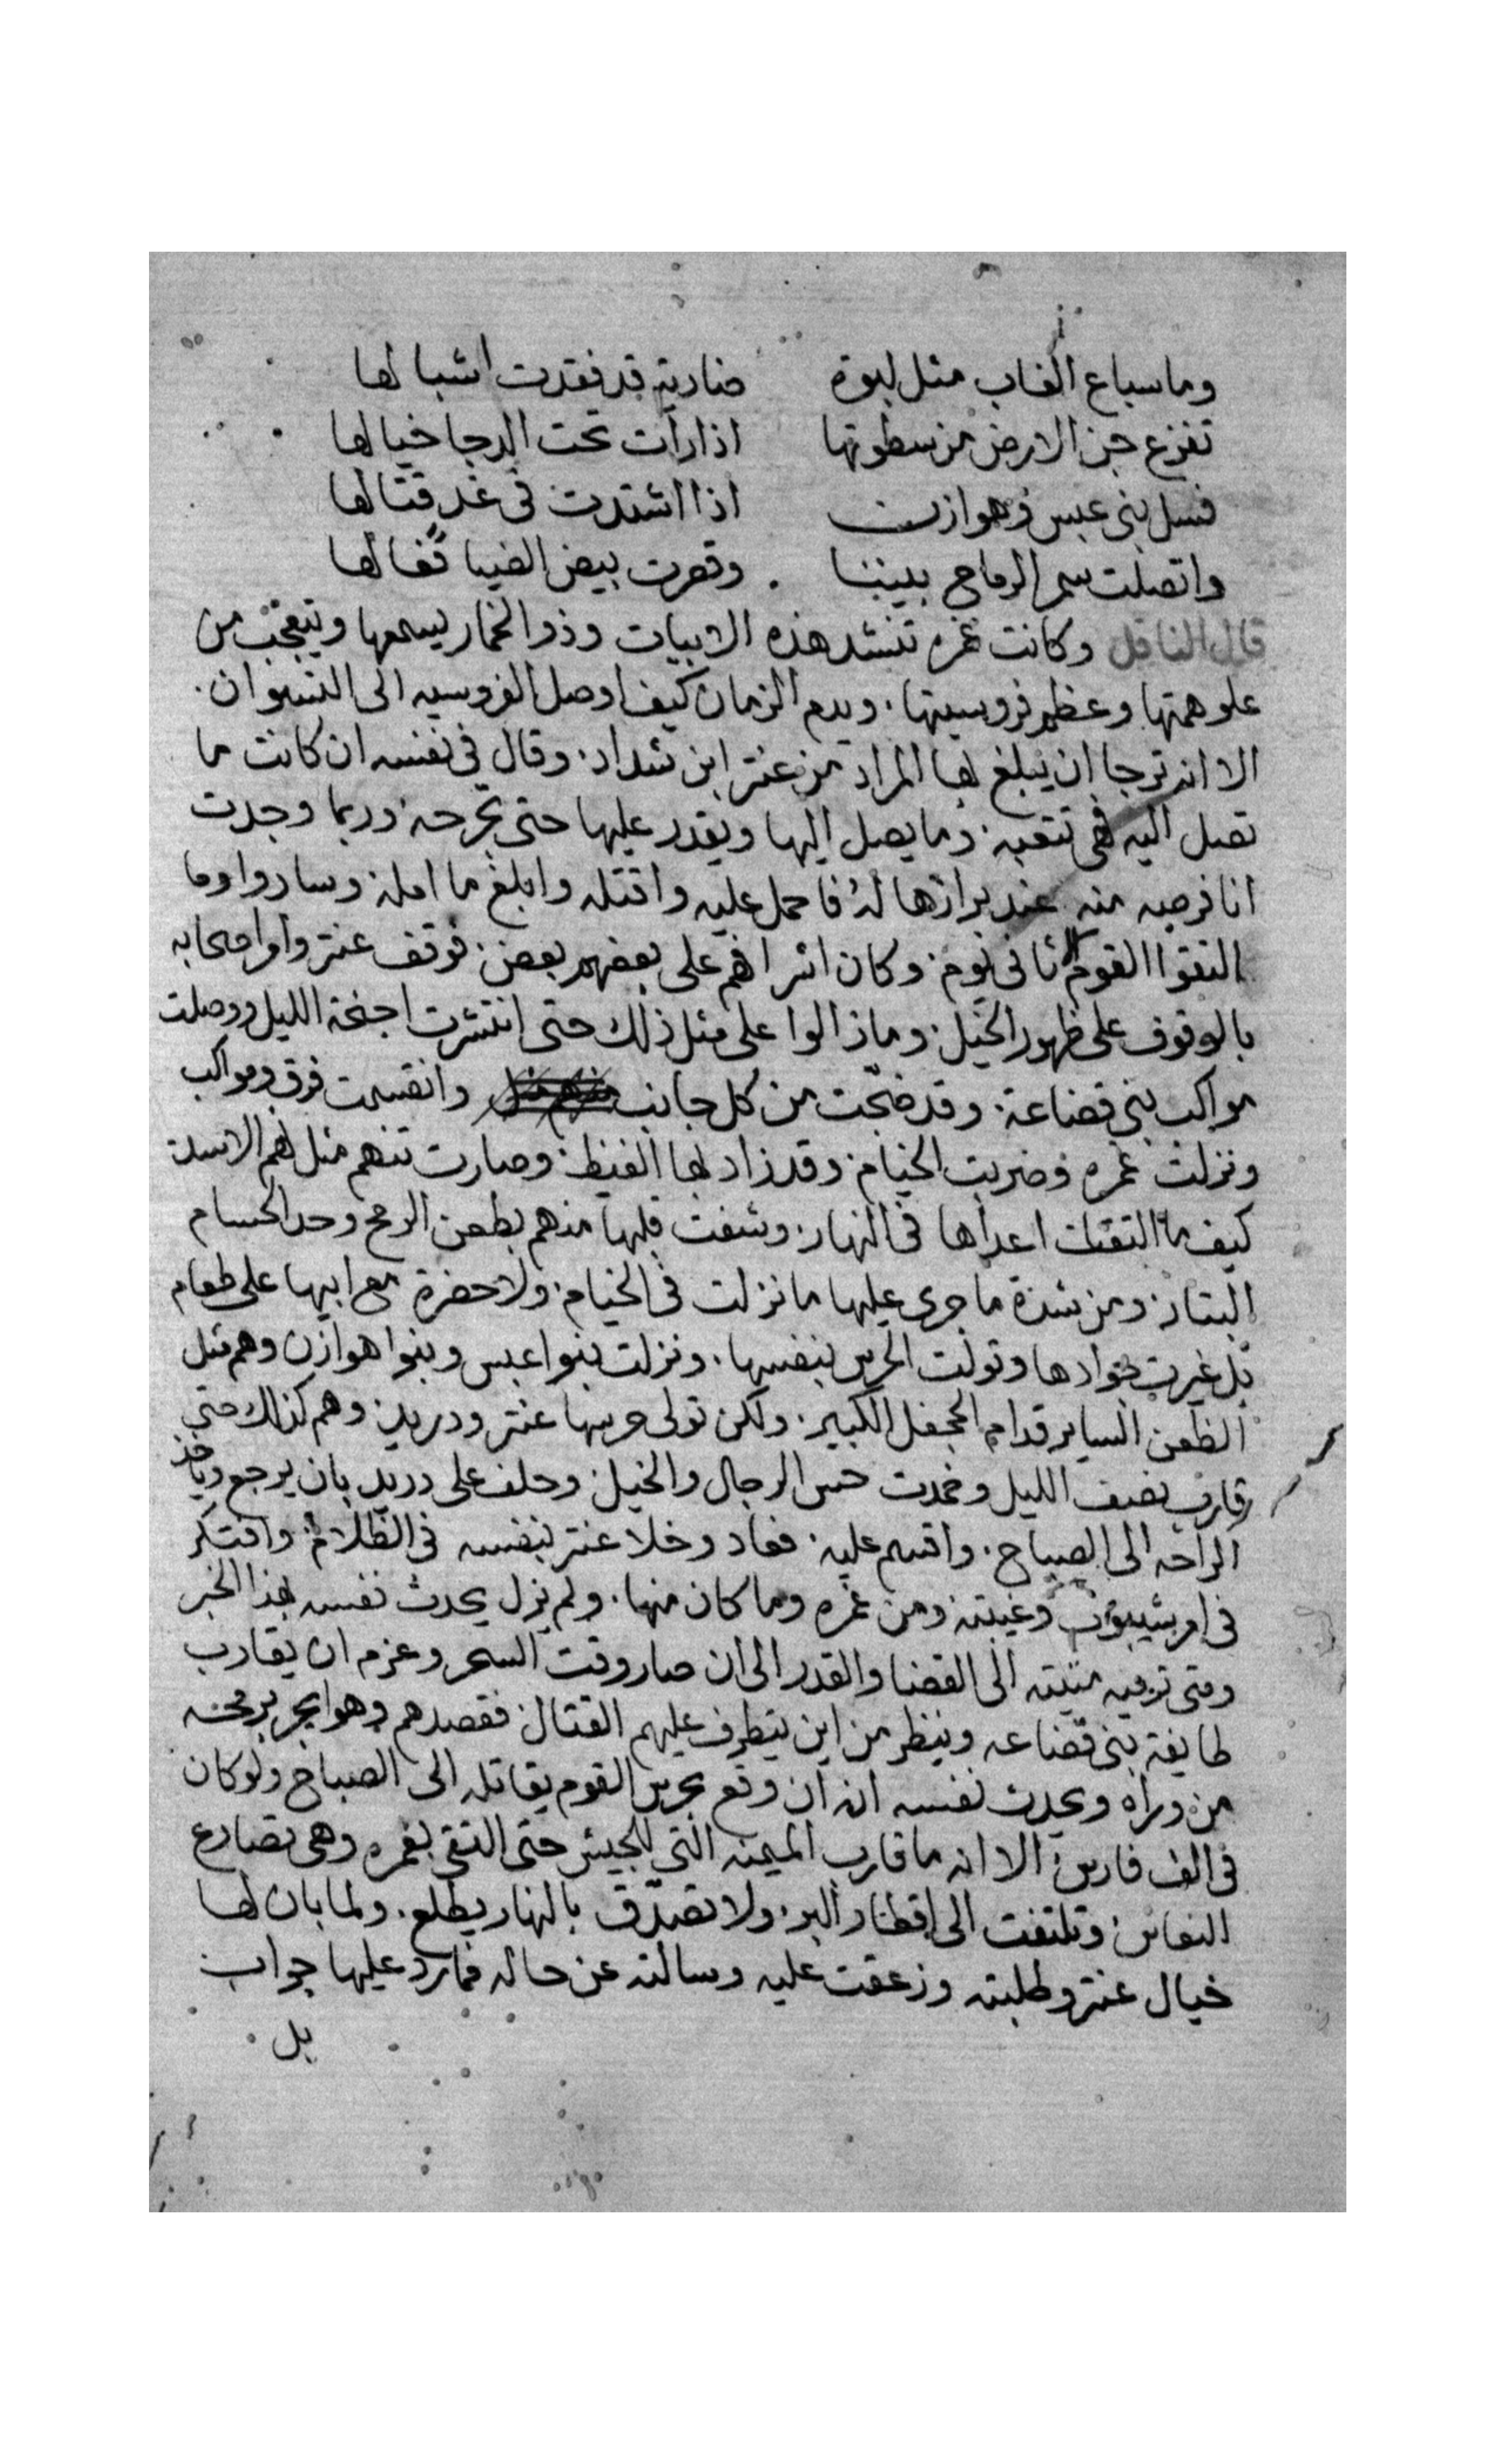 وما سباع الغاب مثل لبوة ضارية قد فقدت اشبالها
تفزع جن الارض من سطوتها اذا رات تحت الدجا خيالها
فسل بني عبس وهوازن اذا اشتدت في غد قتالها
واتصلت سمر الرماح بيننا وقصرت بيض الضبا
قال الناقل وكانت غمره تنشد هذه الابيات وذو الخمار يسمعها ويتعجب من
علو همتها وعظم فروسيتها ويدم الزمان كيف اوصل الفروسيه الى النسوان
الا انه ترجا ان يبلغ بها المراد من عنتر ابن شداد وقال في نفسه ان كانت ما
تصل اليه فهي تتعبه وما يصل اليها ويقدر عليها حتى تجرحه وربما وجدت
انا فرصه منه عند برازها له فاحمل عليه واقتله وابلغ ما امله وساروا وما
التقوا القوم الا ثاني يوم وكان اشرافهم على بعضهم بعض فوقف عنتر وامر اصحابه
بالوقوف على ظهور الخيل وما زالوا على مثل ذلك حتى انتشرت اجنحة الليل ووصلت
مواكب بني قضاعة وقد ضجت من كل جانب وانقسمت فرق ومواكب
ونزلت غمره وضربت الخيام وقد زاد بها الغيظ وصارت تنهم مثل نهم الاسد
كيف ما التقت اعداها في النهار وشفت قلبها منهم بطعن الرمح وحد الحسام
البتار ومن شدة ما جرى عليها ما نزلت في الخيام ولا حضرة مع ابيها على طعام
بل غيرت جوادها وتولت الحرس بنفسها ونزلت بنوا عبس وبنوا هوازن وهم مثل
الظعن الساير قدام الجحفل الكبير ولكن تولى حرسها عنتر ودريد وهم كذلك حتى
قارب نصف الليل وخمدت حس الرجال والخيل وحلف على دريد بان يرجع وياخذ
الراحه الى الصباح واقسم عليه فعاد وخلا عنتر بنفسه في الظلام وافتكر
في امر شيبوب وغيبته ومن غمره وما كان منها ولم يزل يحدث نفسه بهذا الخبر
ومتى ترميه منيته الى القضا والقدر الى ان صار وقت السحر وعزم ان يقارب
طايفة بني قضاعه وينظر من اين يتطرف عليهم القتال فقصدهم وهو يجر برمحه
من وراه ويحدث نفسه انه ان وقع بحرس القوم يقاتله الى الصباح ولو كان
في الف فارس الا انه ما قارب الميمنه التي للجيش حتى التقى بغمره وهي تصارع
النعاس وتلتفت الى اقطار البر ولا تصدق بالنهار يطلع ولما بان لها
خيال عنتر وطلبته وزعقت عليه وسالته عن حاله فما رد عليها جواب
بل